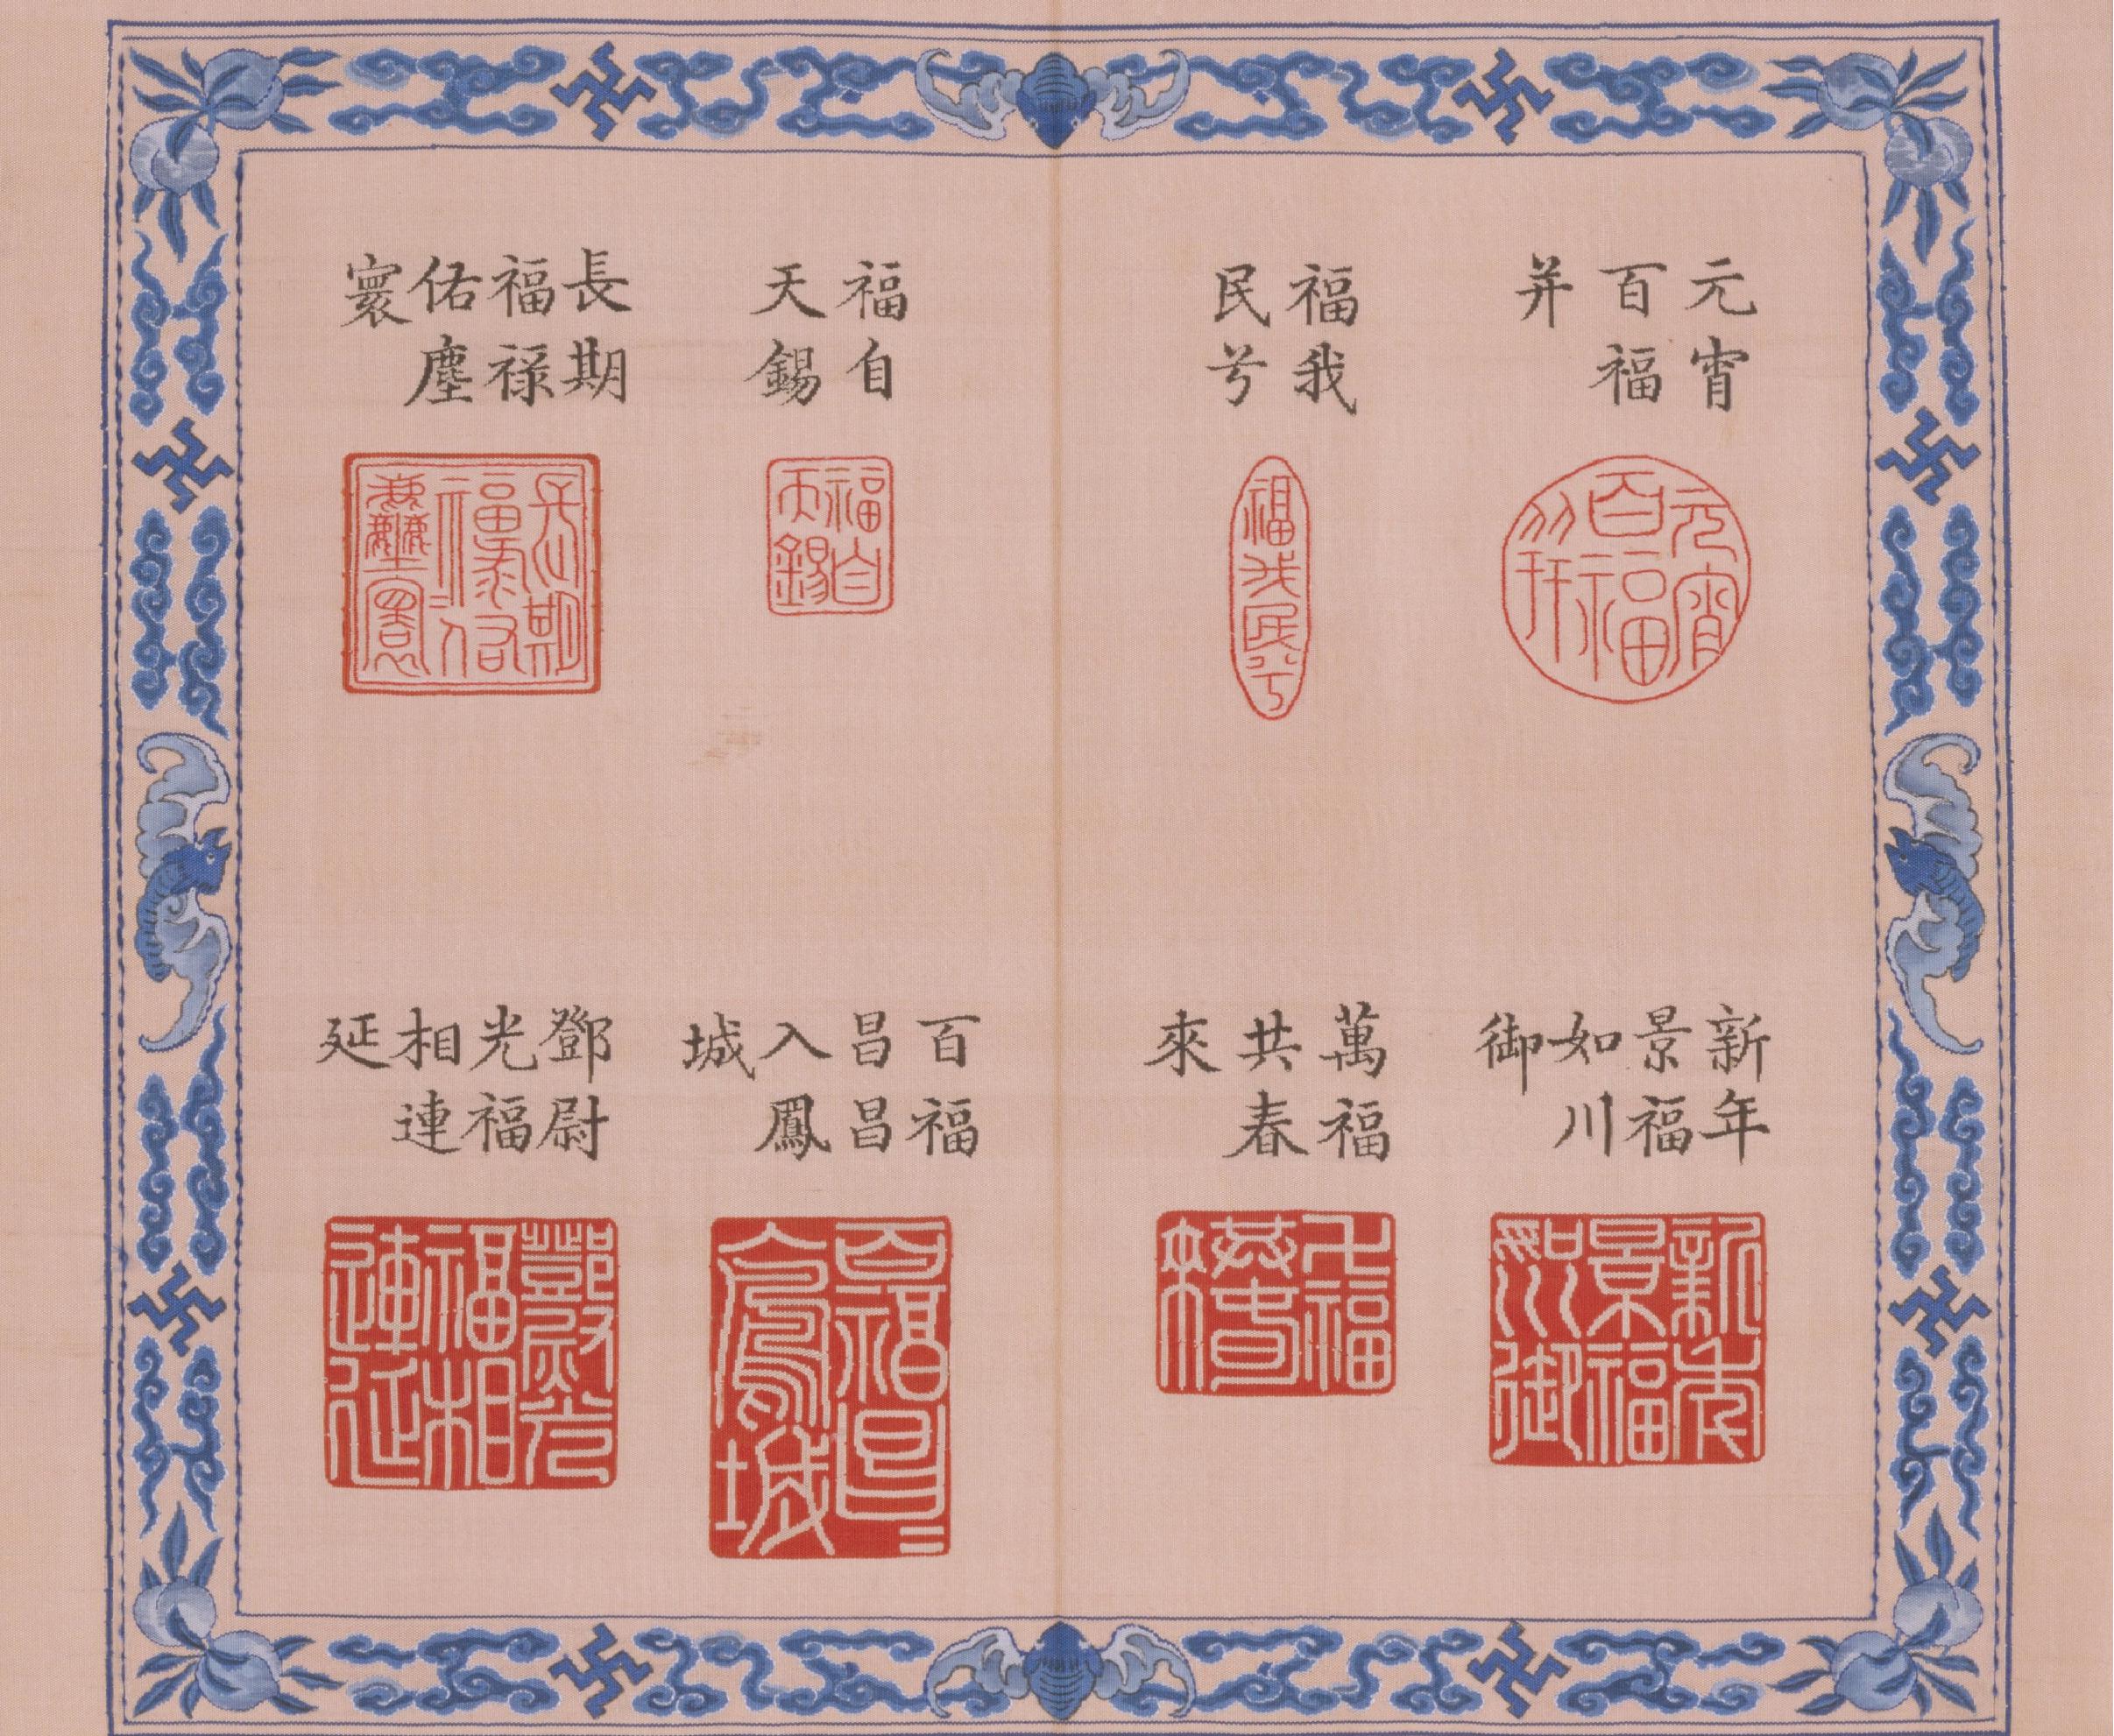 元宵
百福
并
福我
民兮
福自
天錫
長期
福祿
佑塵
寰
元宵百福并
福我民兮
福自天錫
長期福祿佑塵寰
新年
景福
如川
御
萬福
共春
來
百福
昌昌
入鳳
城
鄧尉
光福
相連
延
新年景福如川御
卍福共春來
百福昌昌入鳳城
鄧尉光福相連延